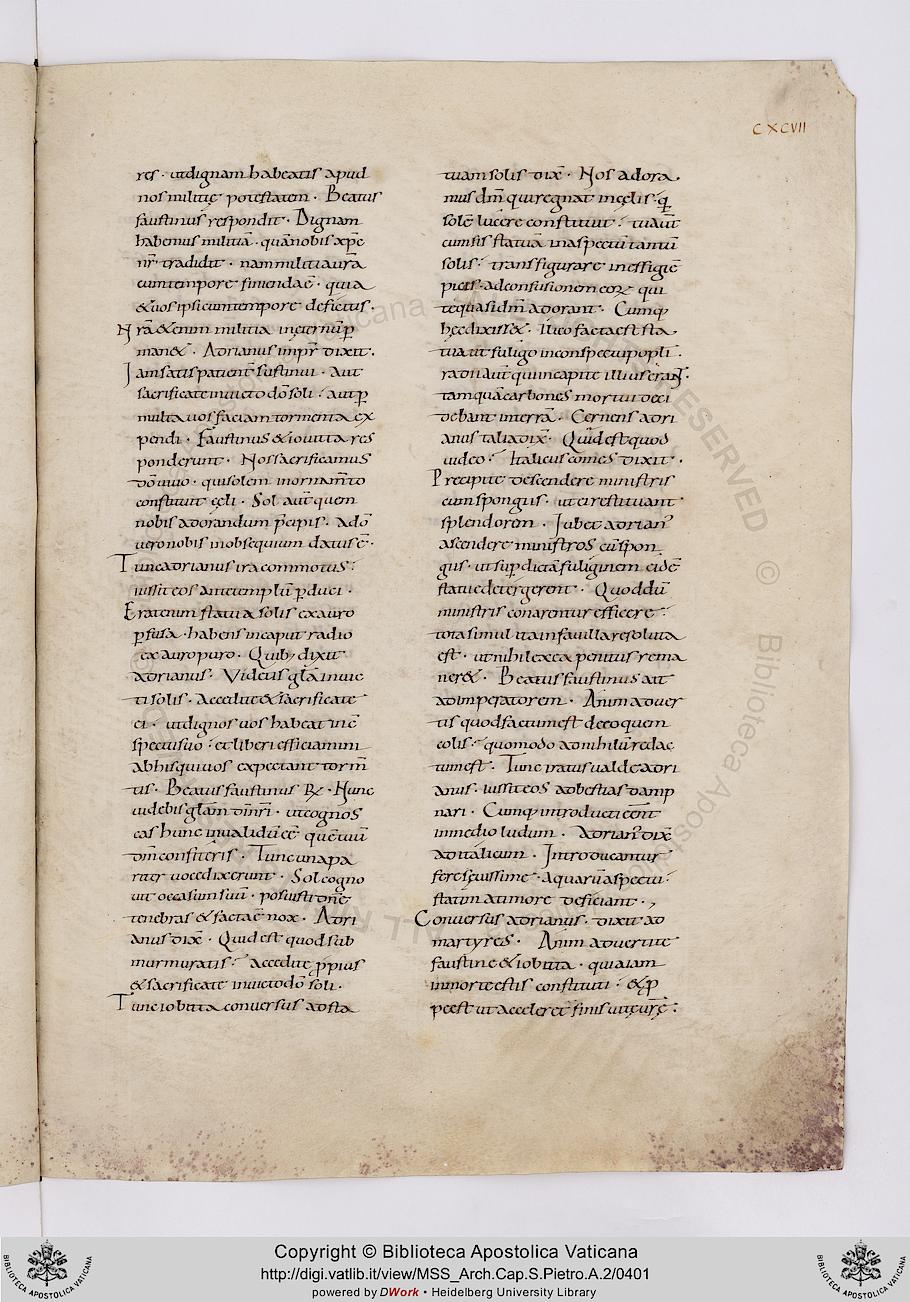 CXCVII
res · ut dignam habeatis apud
nos militię potestatem · Beatus
faustinus respondit · Dignam
habemus militiā · quā nobis xp̄c
nr̄ tradidit · nam militia ur̄a
cum tempore finienda ē · quia
& uos ipsi cum tempore deficietis ·
Nr̄a & enim militia in ęternū p̱
man& · Adrianus impr̄ dixit ·
Iam satis patient sustinui · Aut
sacrificate inuicto dō soli · aut p̱
multa uos faciam tormenta ex
pendi · Faustinus & iouitta res
ponderunt · Nos sacrificamus
dō uiuo · qui solem in ornam̄to
constituit cęli · Sol aut̄ quem
nobis adorandum p̄cipis · Adō
uero nobis in obsequium datus ē ·
Tunc adrianus ira commotus ·
iussit eos ante templū p̱duci ·
Erat enim statua solis ex auro
p̱fusa · habens in caput radio
ex auro puro · Quib; dixit
adrianus · Videtis glā inuic
ti solis · Accedite & sacrificate
ei · ut dignos uos habeat in c̄
spectu suo · et liberi efficiamini
ab his qui uos expectant torm̄
tis · Beatus faustinus R̄ · Nunc
uidebis glām dī nr̄i · ut cognos
cas hunc inualidū ēē quē tuū
dm̄ confiteris · Tunc una pa
riter uoce dixerunt · Sol cogno
uit occasum suū · posuisti dn̄e
tenebras & facta ē nox · Adri
anus dix̄ · Quid est quod sub
murmuratis · Accedite p̱pius
& sacrificate inuicto dō soli ·
Tunc iobitta conuersus ad sta
tuam solis dix̄ · Nos adora
mus dm̄ qui regnat in cęlis · q̱
solē lucere constituit · tu aut̄
cum sis statua in aspectū tantū
solis · transfigurare in effigiē
picis · ad confusionem eoꝝ qui
te quasi dm̄ adorant · Cumq;
hęc dixiss& · Ilico facta est sta
tua ut fuligo in conspectu popli ·
radii aut̄ qui in capite illius erant ·
tamquā carbones mortui deci
debant in terrā · Cernens adri
anus talia dix̄ · Quid est quod
uideo · Italicus comes dixit ·
Precipite descendere ministris
cum spongiis · ut ei restituant
splendorem · Iubet adrian'
ascendere ministros cū spon
giis · ut sup̱ dictā fuliginem eidē
statuę detergerent · Quod dū
ministris conarentur efficere ·
tota simul ita in fauilla resoluta
est · ut nihil ex ea penitus rema
ner& · Beatus faustinus ait
ad imperatorem · Animaduer
tis quod factum est de eo quem
colis · quomodo ad nihilū redac
tum est · Tunc iratus ualde adri
anus · iussit eos ad bestias damp
nari · Cumq; introducti eēnt
in medio ludum · Adrian' dix̄
ad italicum · Introducantur
ferę sęuissime · a quarū aspectu
statim a timore deficiant ·
Conuersus adrianus · dixit ad
martyres · Animaduertite
faustine & iobitta · quia iam
in morte estis constituti · & p̱
pe est ut acceler& finis uitę ur̄ę ·
Copyright © Biblioteca Apostolica Vaticana
http://digi.vatlib.it/view/MSS_Arch.Cap.S.Pietro.A.2/0401
powered by DWork • Heidelberg University Library